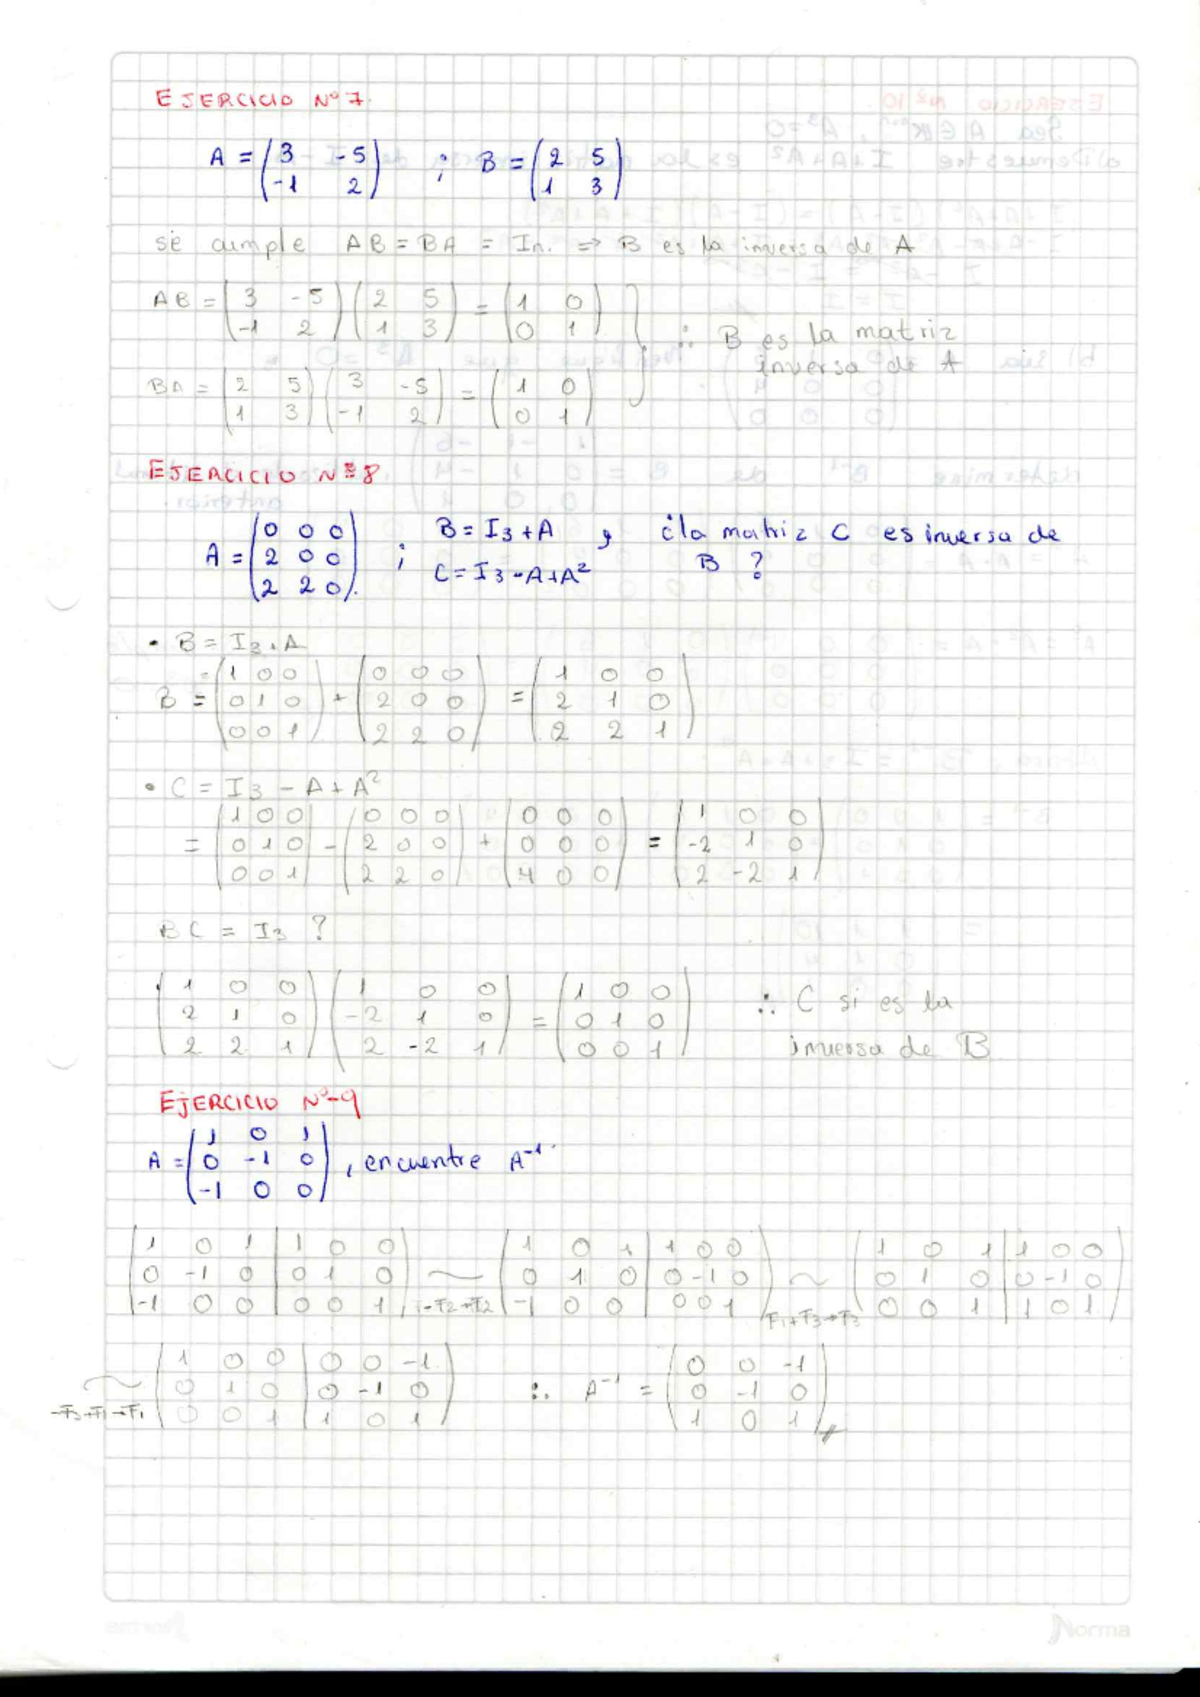 EJERCICIO Nº 7.
A = (3 -5; -1 2) ; B = (2 5; 1 3)
se cumple AB = BA = In. => B es la inversa de A
AB = (3 -5; -1 2) (2 5; 1 3) = (1 0; 0 1)
∴ B es la matriz
inversa de A
BA = (2 5; 1 3) (3 -5; -1 2) = (1 0; 0 1)
EJERCICIO Nº 8
A = (0 0 0; 2 0 0; 2 2 0) ; B = I3 + A , ¿la matriz C es inversa de
C = I3 - A + A² B ?
• B = I3 + A
B = (1 0 0; 0 1 0; 0 0 1) + (0 0 0; 2 0 0; 2 2 0) = (1 0 0; 2 1 0; 2 2 1)
• C = I3 - A + A²
= (1 0 0; 0 1 0; 0 0 1) - (0 0 0; 2 0 0; 2 2 0) + (0 0 0; 0 0 0; 4 0 0) = (1 0 0; -2 1 0; 2 -2 1)
BC = I3 ?
(1 0 0; 2 1 0; 2 2 1) (1 0 0; -2 1 0; 2 -2 1) = (1 0 0; 0 1 0; 0 0 1)
∴ C si es la
inversa de B
EJERCICIO Nº-9
A = (1 0 1; 0 -1 0; -1 0 0) , encuentre A⁻¹.
(1 0 1 | 1 0 0; 0 -1 0 | 0 1 0; -1 0 0 | 0 0 1) ~ -F2→F2 (1 0 1 | 1 0 0; 0 1 0 | 0 -1 0; -1 0 0 | 0 0 1) ~ F1+F3→F3 (1 0 1 | 1 0 0; 0 1 0 | 0 -1 0; 0 0 1 | 1 0 1)
~ -F3+F1→F1 (1 0 0 | 0 0 -1; 0 1 0 | 0 -1 0; 0 0 1 | 1 0 1) ∴ A⁻¹ = (0 0 -1; 0 -1 0; 1 0 1)
Norma